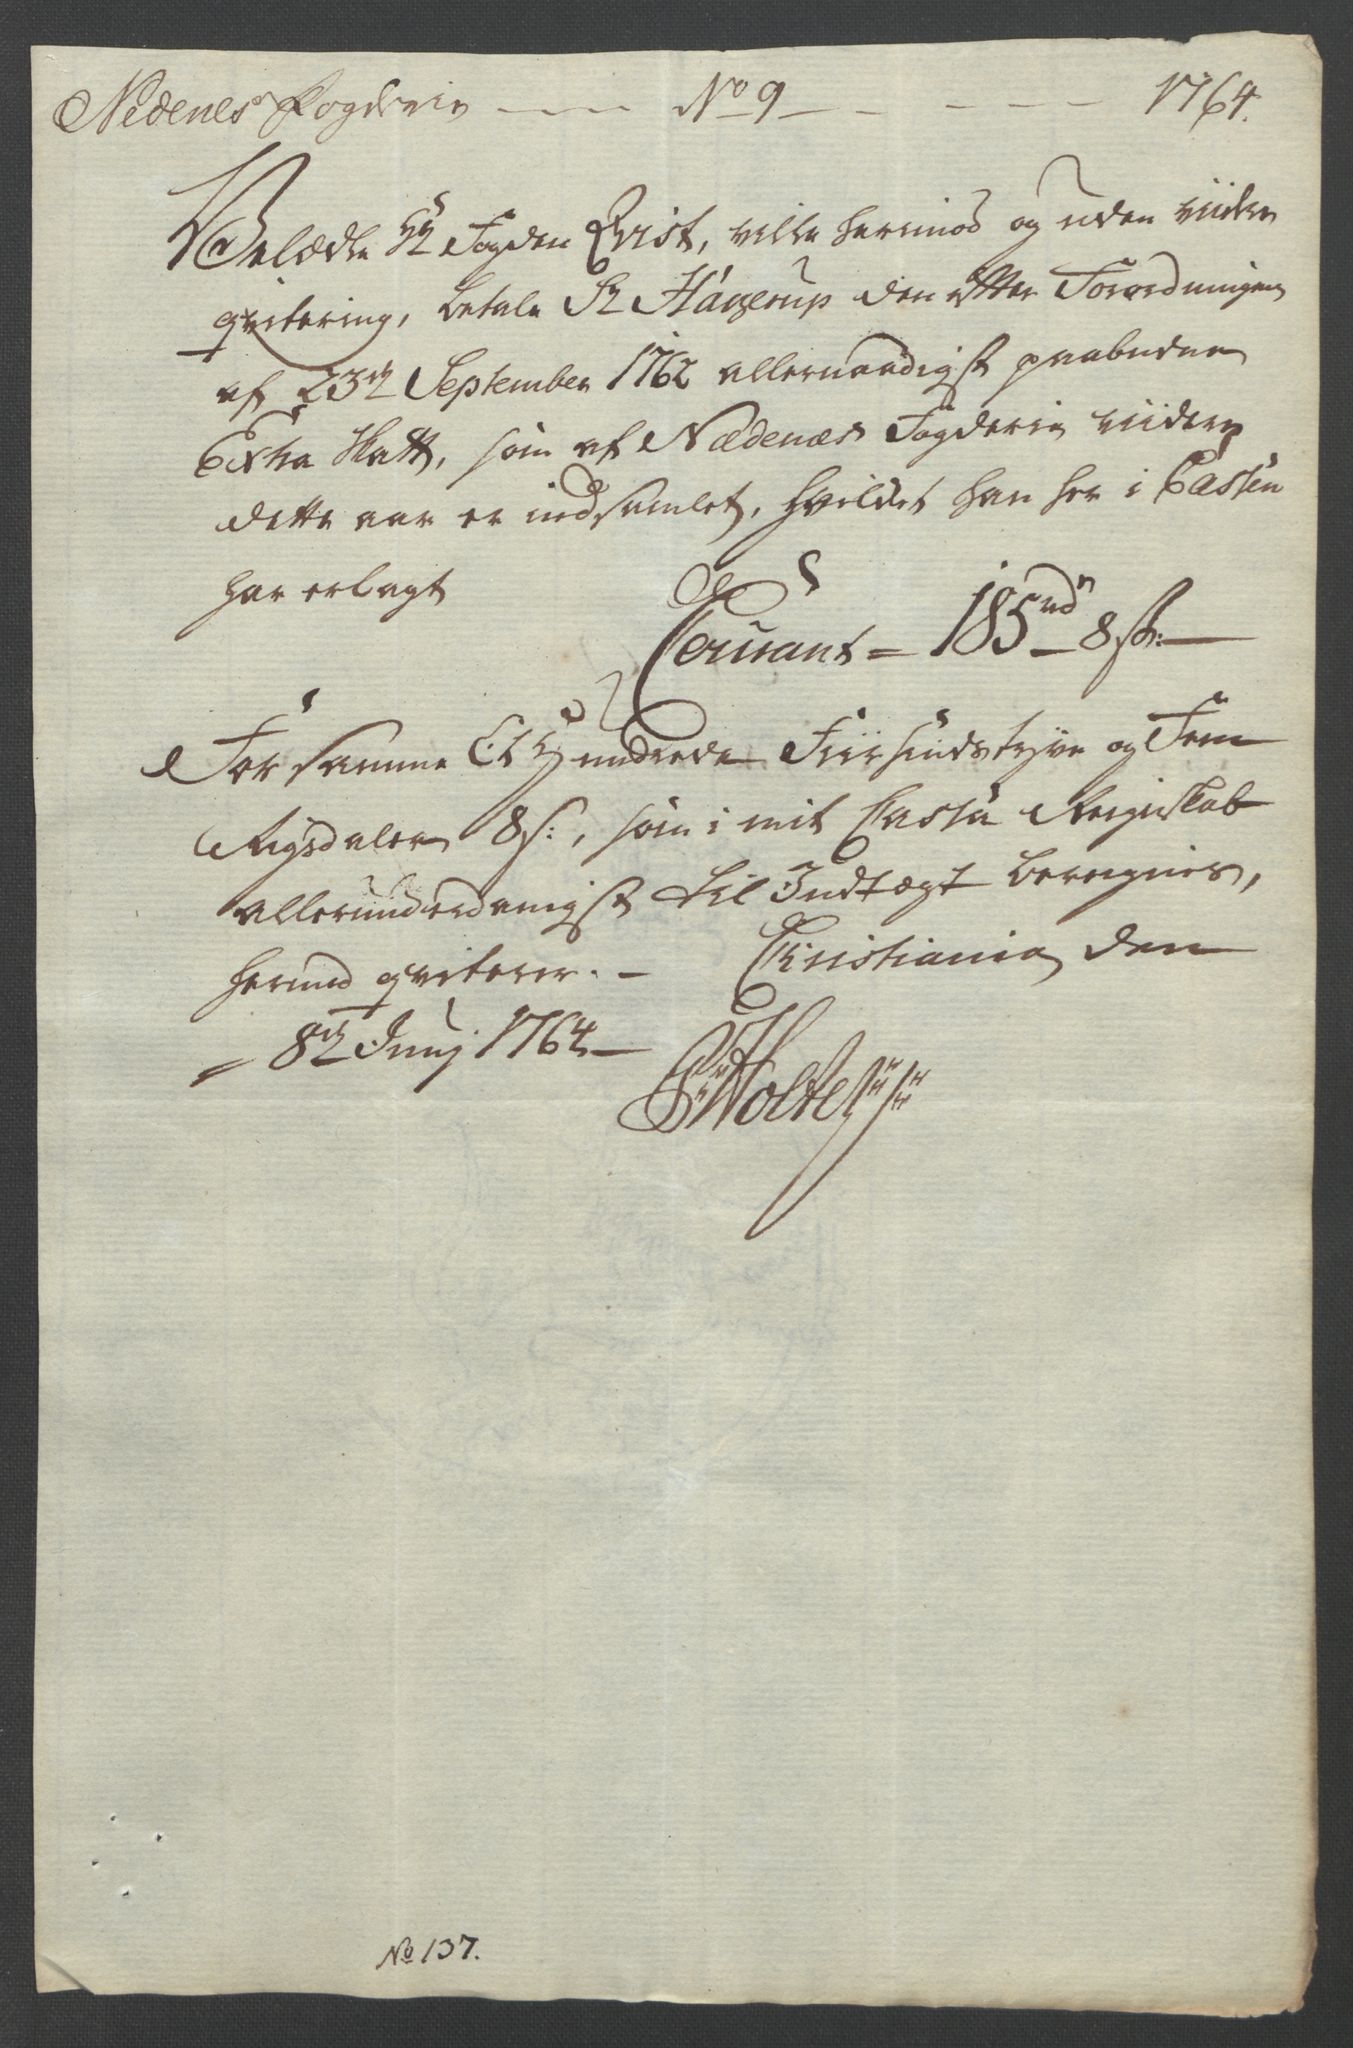 Nedenes Fogderie — No 9 — 1764.
Velædle Hr Fogden Qvist, ville herimod og uden viidere
qvitering, betale Sr Hagerup den efter Forordningen
af 23de September 1762 allernaadigst paabudne
Extra Skatt, som af Nædenæs Fogderie viidere
dette aar er indsamlet, hvilket han her i Cassen
har erlagt
Courant = 185 rdr 8 sk:
For samme Et Hundrede Fiirsindstyve og Fem
Rigsdaler 8 s:, som i mit Cassa Regnskab
allerunderdanigst til Indtægt beregnes,
herved qviterer. — Christiania den
8de Junij 1764
P Holte
No 137.